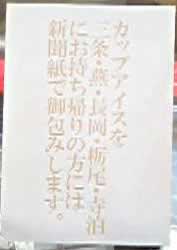 カップアイスを
三条・燕・長岡・栃尾・寺泊
にお持ち帰りの方には
新聞紙で御包みします。